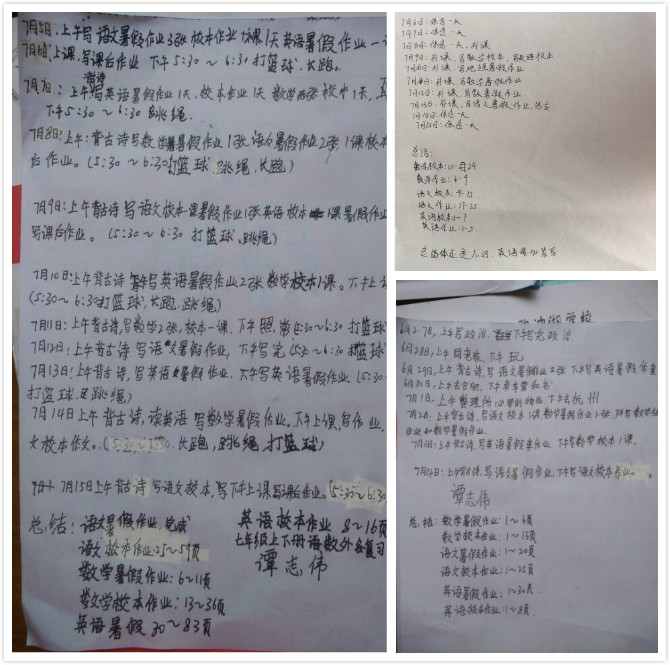 7月5日,上午写语文暑假作业3张校本作业1课1天英语暑假作业一
7月6日:上课,写课后作业 下午5:30~6:30打篮球、长跑。
7月7日:上午写英语暑假作业1天,校本作业1天 数学两张校本1天,
下午5:30~6:30跳绳
7月8日:上午:背古诗写数学暑假作业1张语文暑假作业2张1课校本
后作业。(5:30~6:30打篮球,跳绳,长跑)
7月9日:上午背古诗写语文校本一课暑假作业1张英语校本1课暑假作业
写课后作业。(5:30~6:30打篮球,跳绳)
7月10日:上午背古诗写英语暑假作业2张数学校本1课。下午上
(5:30~6:30打篮球,长跑,跳绳)
7月11日:上午背古诗,写数学2张,校本一课,下午照常(5:30~6:30打篮球)
7月12日:上午背古诗写语文暑假作业,下午写完(5:30~6:30打篮球
7月13日:上午背古诗,写英语暑假作业,下午写英语暑假作业(5:30~
打篮球,跳绳)
7月14日上午背古诗,读英语写数学暑假作业。下午上课,写作业,
文校本作文。(5:30~7:30.长跑,跳绳,打篮球)
7月15日上午背古诗写语文校本,写下午上课写课后作业。(5:30~6:30
总结:语文暑假作业,完成
语文校本作业25~59页
数学暑假作业:6~11页
数学校本作业:13~36页
英语暑假30~83页
英语校本作业8~16页
七年级上下册语数外各复习
谭志伟
7月6日:休息一天
7月7日:休息一天
7月8日:休息一天,补课
7月9日:补课,写数学校本,写语校本
7月10日:补课,写地理暑假作业
7月11日:补课,写数学暑假作业
7月12日:补课,写数暑假作业
7月13日:补课,写语文暑假作业,练字
7月14日:休息一天
7月15日:休息一天
总结:
数学校本:
数学作业:6-9
语文校本:9-15
语文作业:17-25
英语校本1-7
英语作业:1-5
学校
6月27日,上午写政治,下午写完政治
6月28日,上午 下午玩
6月29日,上午背古诗,写语文暑假作业2张 下午写英语暑假作业
6月30日,上午去书吧,下午
7月1日,上午整理所必带的物品 下午去杭州
7月2日,上午背古诗,写语文校本1课数学暑假作业2张,下午写数学校
本作业和数学暑假作业。
7月3日:上午背古诗,写英语暑假作业 下午写数学校本1课.
7月4日:上午背古诗,写语文暑假作业,下午写语文校本作业。
谭志伟
总结:数学暑假作业:1~6页
数学校本作业:1~13页
语文暑假作业:1~20页
语文校本作业:1~25页
英语暑假作业:1~30页.
英语校本作业:1~8页.